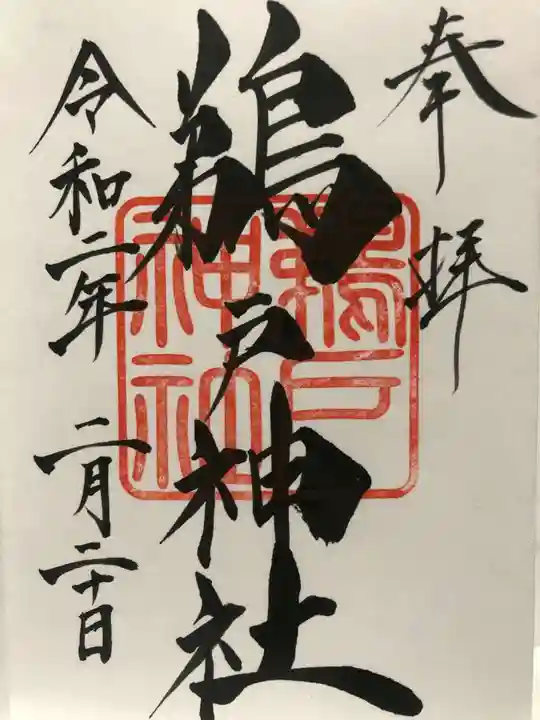 奉拝
鵜戸神社
鵜戸神社
令和二年 二月二十日